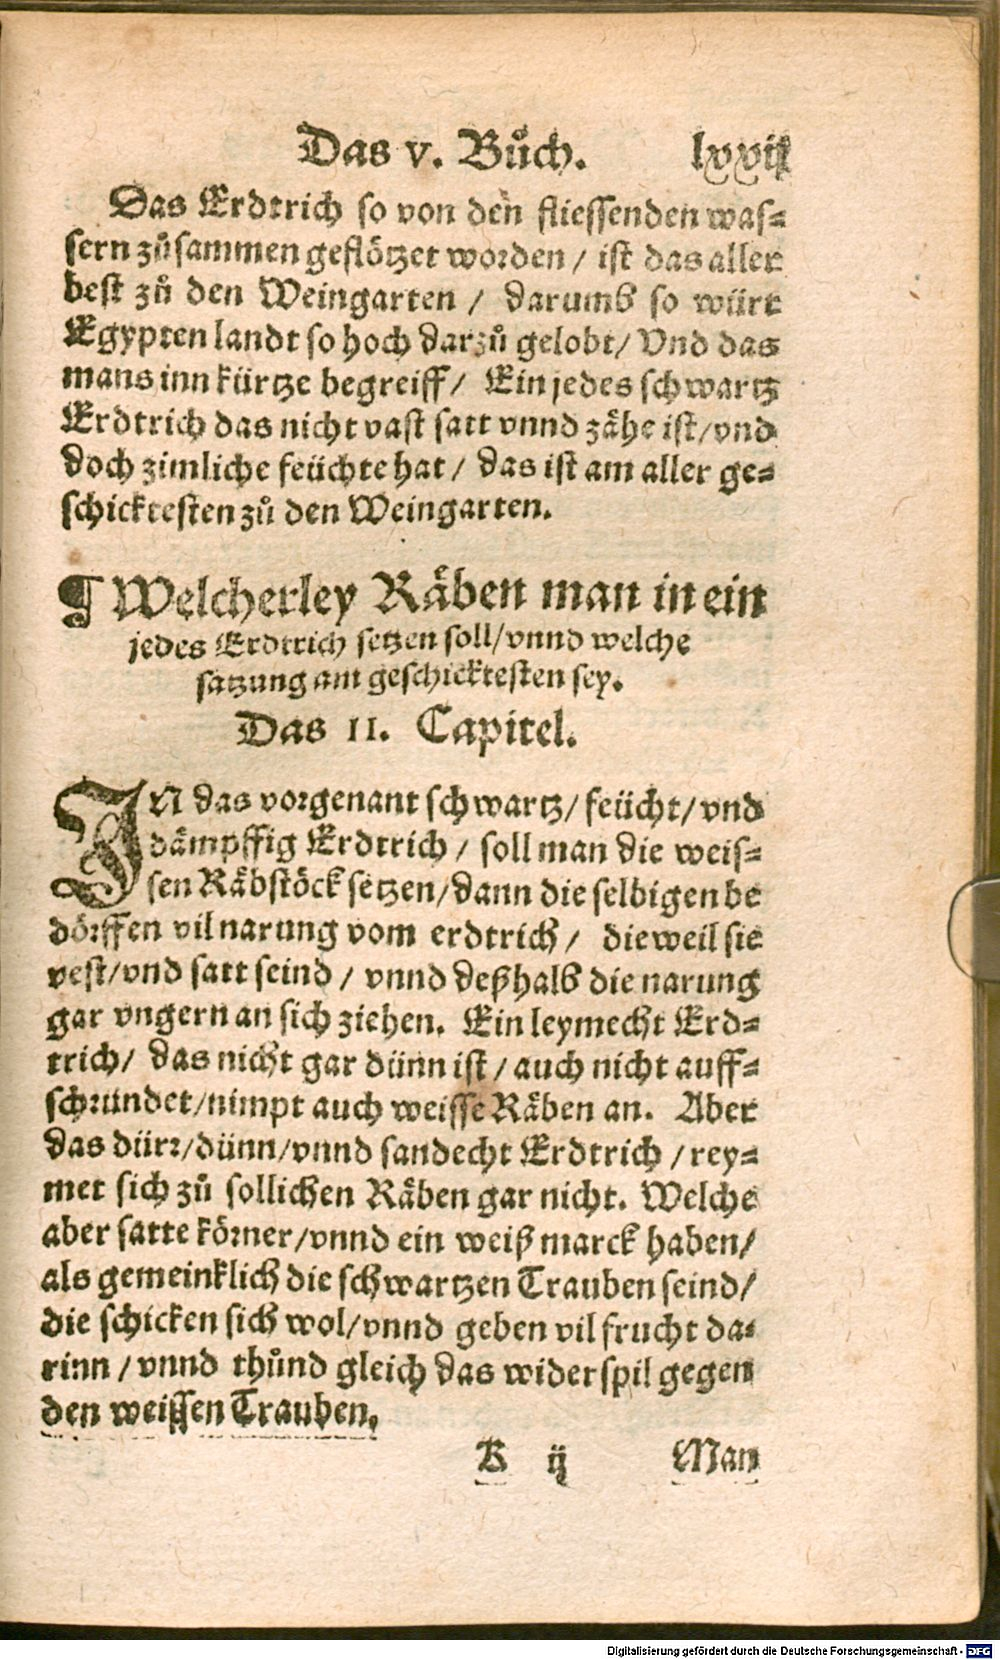 Das v. Bůch. lxxvij
Das Erdtrich so von den fliessenden was=
sern zůsammen geflötzet worden / ist das aller
best zů den Weingarten / darumb so würt
Egypten landt so hoch darzů gelobt / Vnd das
mans inn kürtze begreiff / Ein jedes schwartz
Erdtrich das nicht vast satt vnnd zähe ist / vnd
doch zimliche feüchte hat / das ist am aller ge=
schicktesten zů den Weingarten.
¶ Welcherley Räben man in ein
jedes Erdtrich setzen soll / vnnd welche
satzung am geschicktesten sey.
Das II. Capitel.
IN das vorgenant schwartz / feücht / vnd
dämpffig Erdtrich / soll man die weis=
sen Räbstöck setzen / dann die selbigen be
dörffen vil narung vom erdtrich / dieweil sie
vest / vnd satt seind / vnnd deßhalb die narung
gar vngern an sich ziehen. Ein leymecht Erd=
trich / das nicht gar dünn ist / auch nicht auff=
schrundet / nimpt auch weisse Räben an. Aber
das dürr / dünn / vnnd sandecht Erdtrich / rey=
met sich zů sollichen Räben gar nicht. Welche
aber satte körner / vnnd ein weiß marck haben /
als gemeinklich die schwartzen Trauben seind /
die schicken sich wol / vnnd geben vil frucht da=
rinn / vnnd thůnd gleich das widerspil gegen
den weissen Trauben.
K ij Man
Digitalisierung gefördert durch die Deutsche Forschungsgemeinschaft - DFG